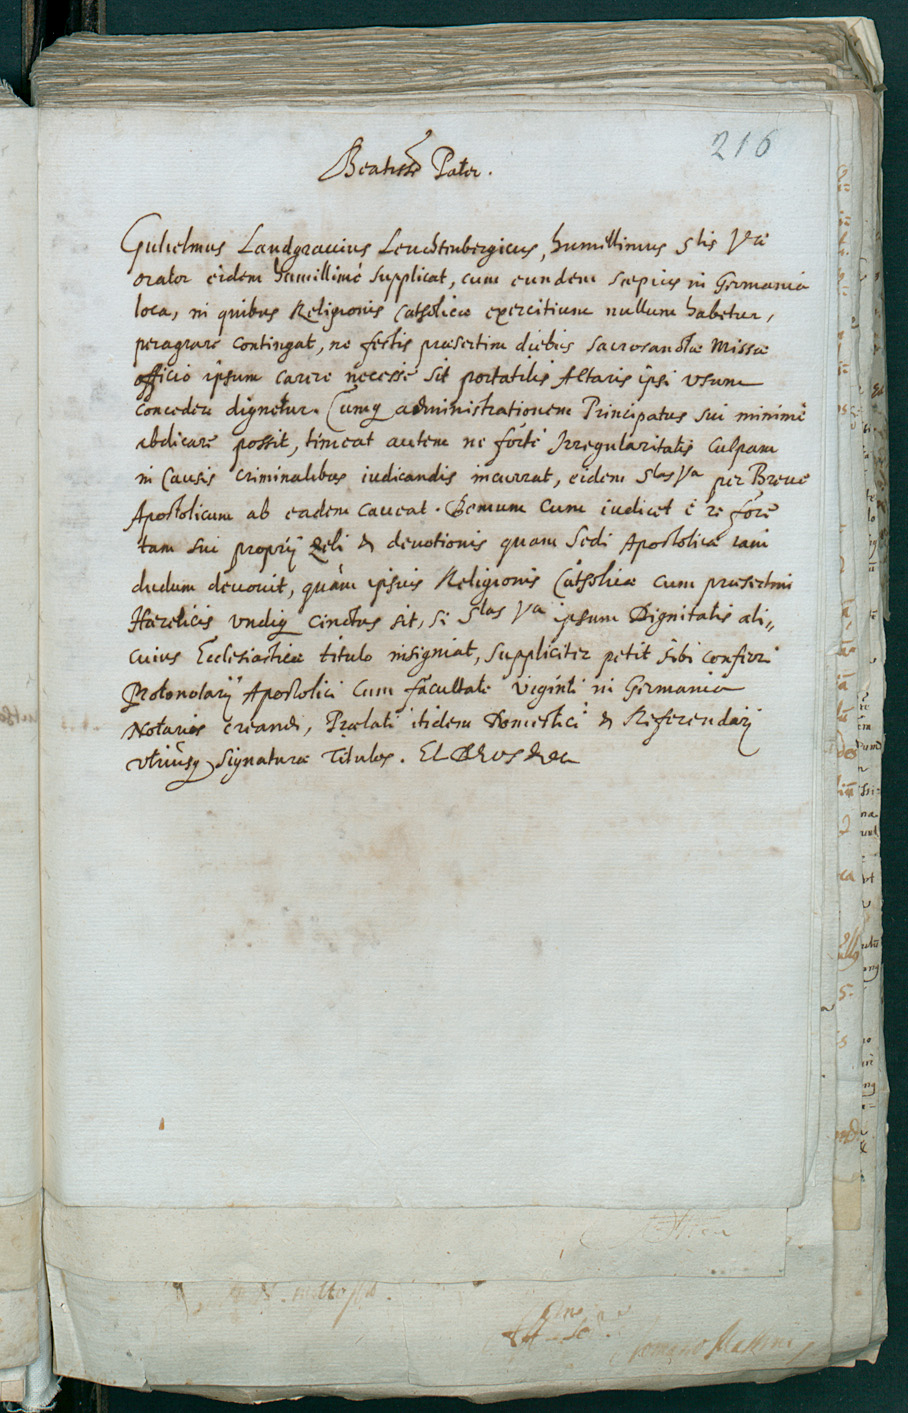 216
Beatiss.e Pater.
Gulielmus Landgrauius Leuchtenbergicus, humillimus Stis Vræ
orator eidem humillimè supplicat, cum eundem sæpius in Germaniæ
loca, in quibus Religionis Catholicæ exercitium nullum habetur,
peragrare contingat, ne festis præsertim diebus sacrosanctæ Missæ
officio ipsum carere necesse sit portatilis Altaris ipsi vsum
concedere dignetur. Cumq administrationem Principatus sui minimè
abdicare possit, timeat autem ne fortè Irregularitatis culpam
in Causis criminalibus iudicandis incurrat, eidem Stas Va per Breue
Apostolicum ab eadem caueat. Demum cum iudicet è re fore
tam sui proprij Zeli & deuotionis quam Sedi Apostolicæ iam
dudum deuouit, quàm ipsius Religionis Catholicæ cum præsertim
Hæreticis vndiq cinctus sit, si Stas Va ipsum Dignitatis ali„
cuius Ecclesiasticæ titulo insigniat, suppliciter petit sibi conferri
Protonotarij Apostolici cum facultate viginti in Germania
Notarios creandi, Prælati itidem Domestici & Referendarij
vtriusq Signaturæ Titulos. Et Deus &ca